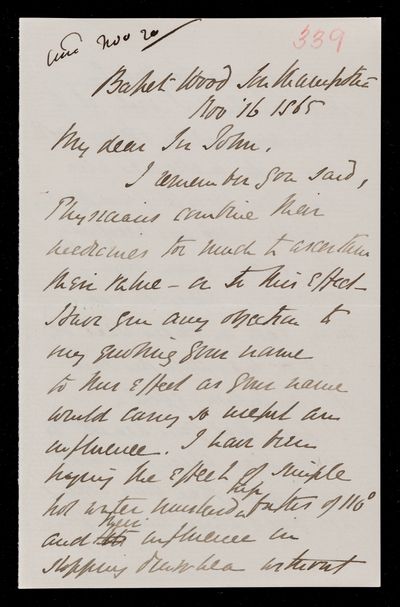 Ansd Nov 20
339
Basset Wood Southampton
Nov 16 1865
My dear Sir John.
I remember you said,
Physicians combine their
medicines too much to ascertain
their value - or to this effect -
Have you any objection to
my quoting your name
to this effect as your name
would carry so useful an
influence. I have been
trying the effect of simple
hot water mustard hip baths of 110°
and its their influence in
stopping diarrhoea without